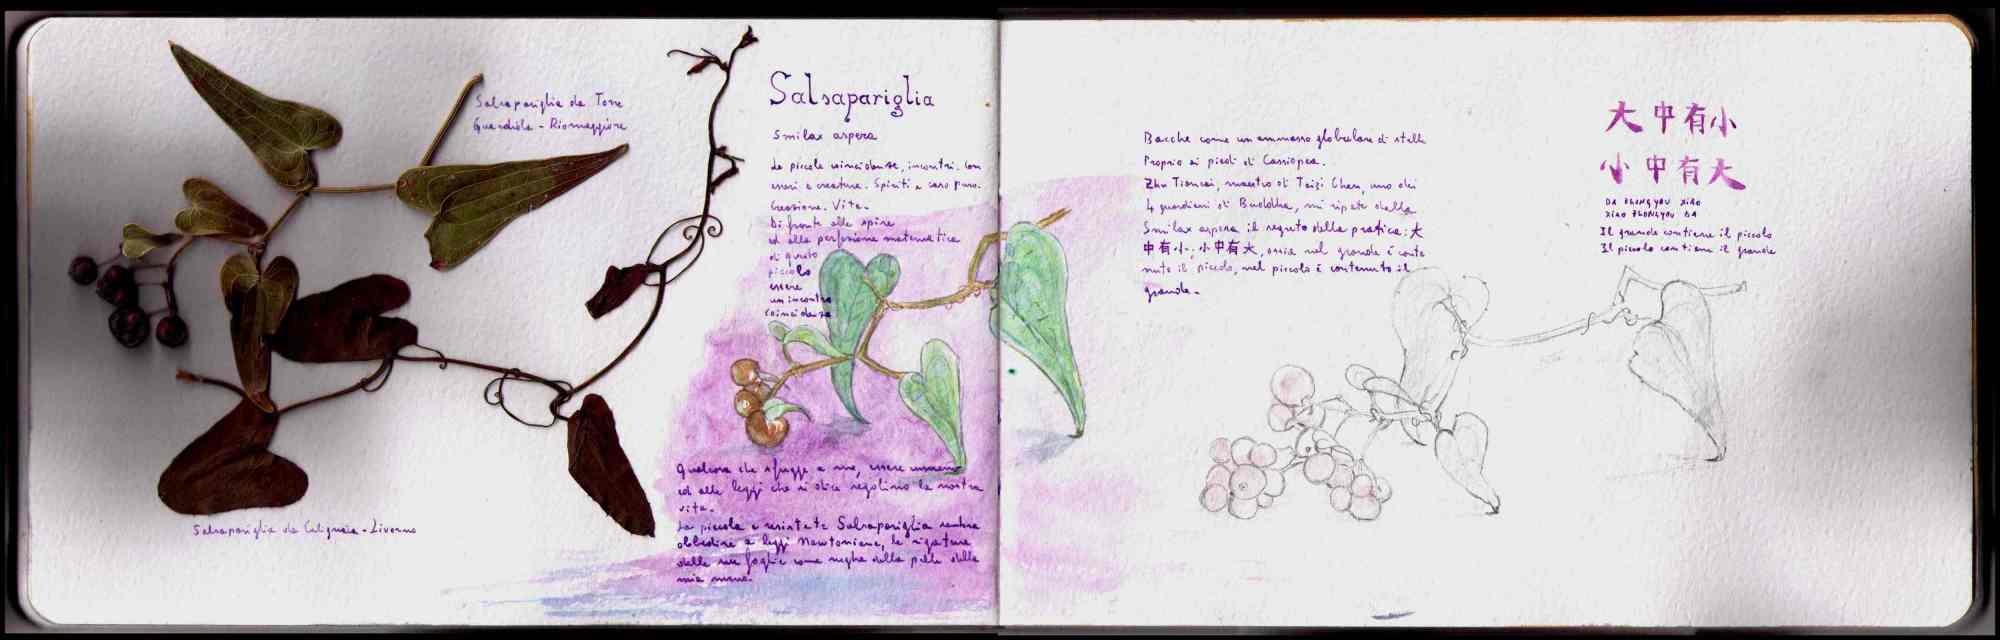 Salsapariglia da Torre
Guardiola - Riomaggiore
Salsapariglia da Calignaia - Livorno
Salsapariglia
Smilax aspera
Le piccole coincidenze, incontri. Con
esseri e creature. Spiriti e caso puro.
Creazione. Vita.
Di fronte alle spine
ed alla perfezione matematica
di questo
piccolo
essere
un incontro
coincidenza
Qualcosa che sfugge a me, essere umano
ed alle leggi che si dice regolino la nostra
vita.
La piccola e resistente Salsapariglia sembra
obbedire a leggi Newtoniane, le rigature
delle sue foglie come rughe della pelle della
mia mano.
Bacche come un ammasso globulare di stelle
Proprio ai piedi di Cassiopea.
Zhu Tiancai, maestro di Taiji Chen, uno dei
4 guardiani di Buddha, mi ripete dalla
Smilax aspera il segreto della pratica: 大
中有小; 小中有大, ossia nel grande è conte
nuto il piccolo, nel piccolo è contenuto il
grande.
大中有小
小中有大
DA ZHONG YOU XIAO
XIAO ZHONG YOU DA
Il grande contiene il piccolo
Il piccolo contiene il grande